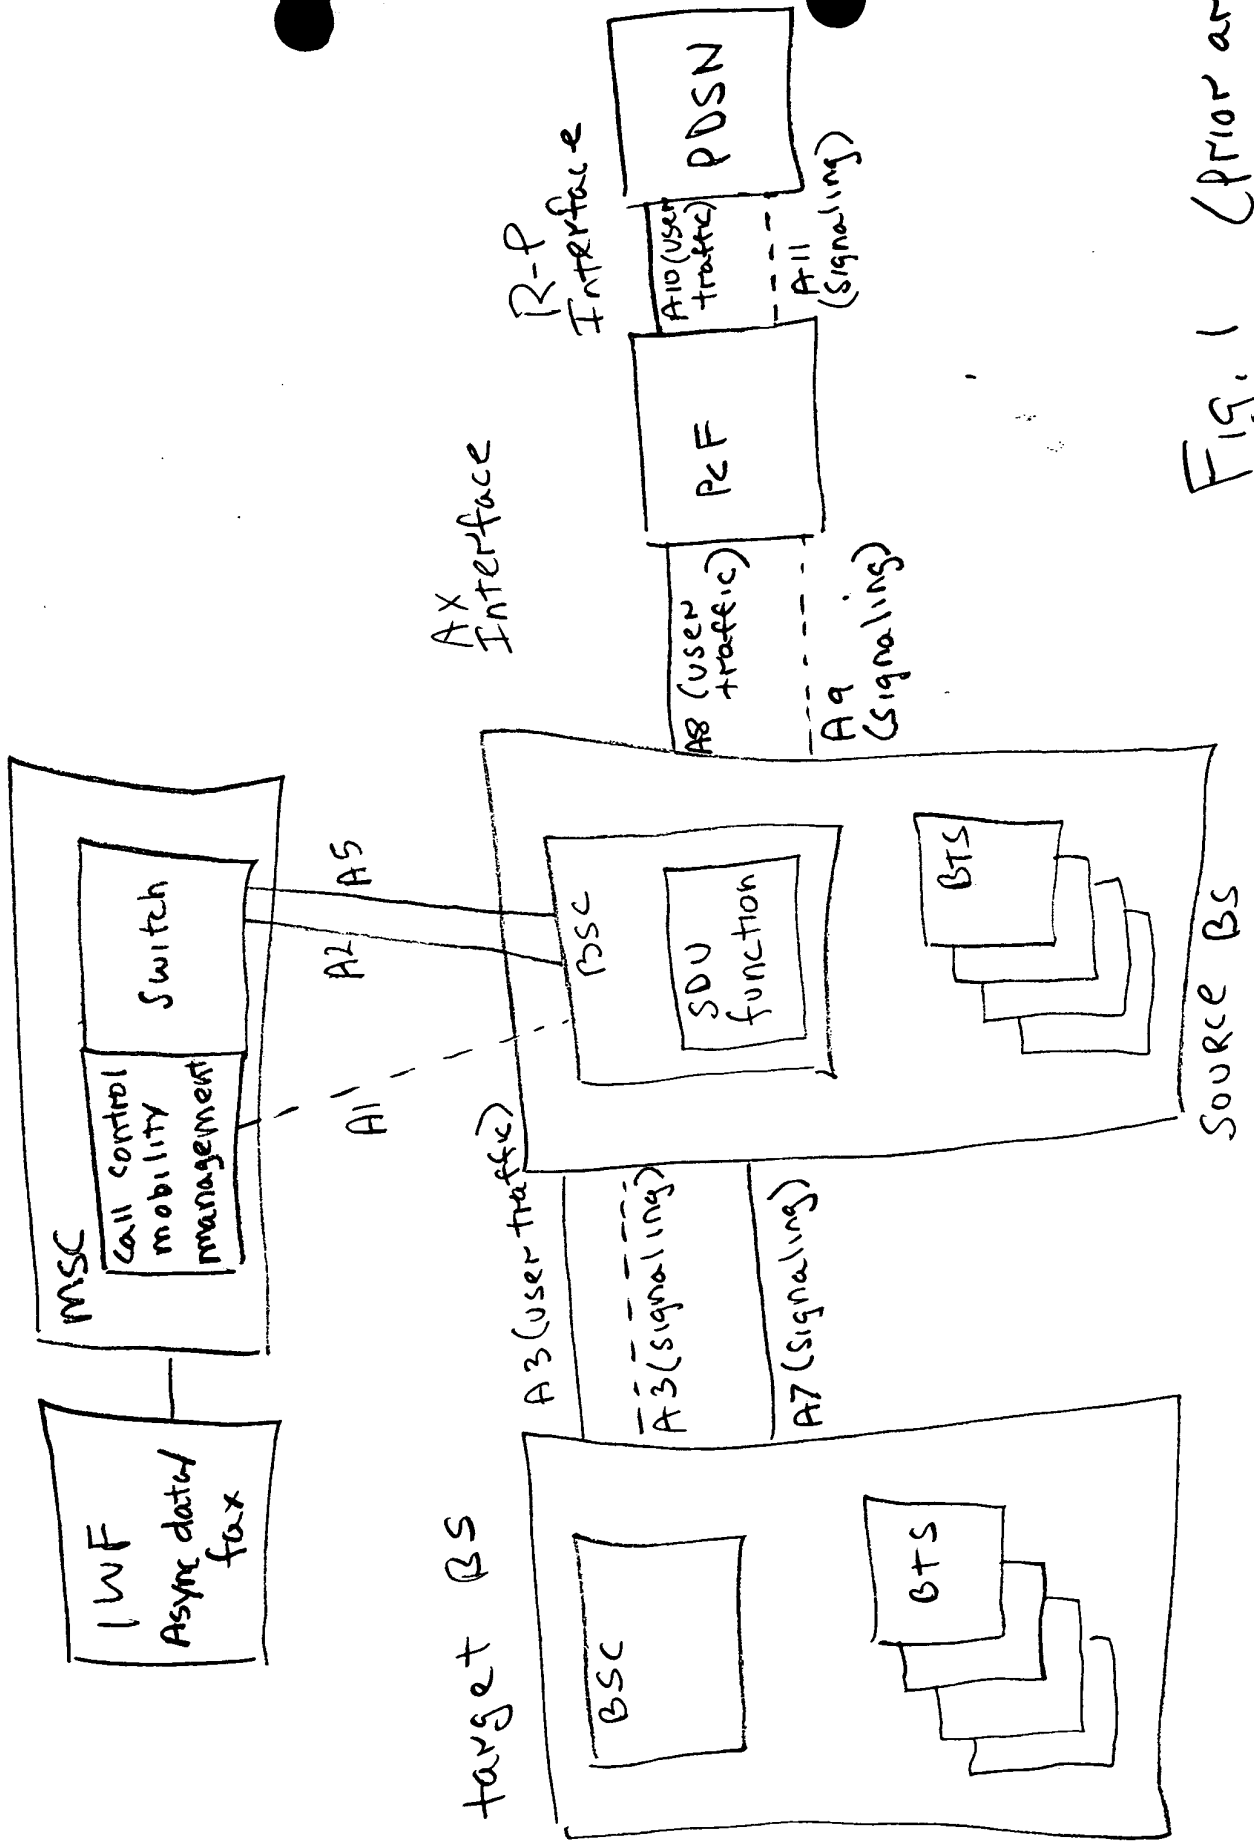 IWF
Async data/
fax
MSC
call control
mobility
management
Switch
A1
A2
A5
target BS
BSC
BTS
A3 (user traffic)
A3 (signaling)
A7 (signaling)
BSC
SDU
function
BTS
SOURCE BS
Ax
Interface
A8 (user
traffic)
A9
(signaling)
PCF
R-P
Interface
A10 (user
traffic)
A11
(signaling)
PDSN
Fig. 1 (Prior ar